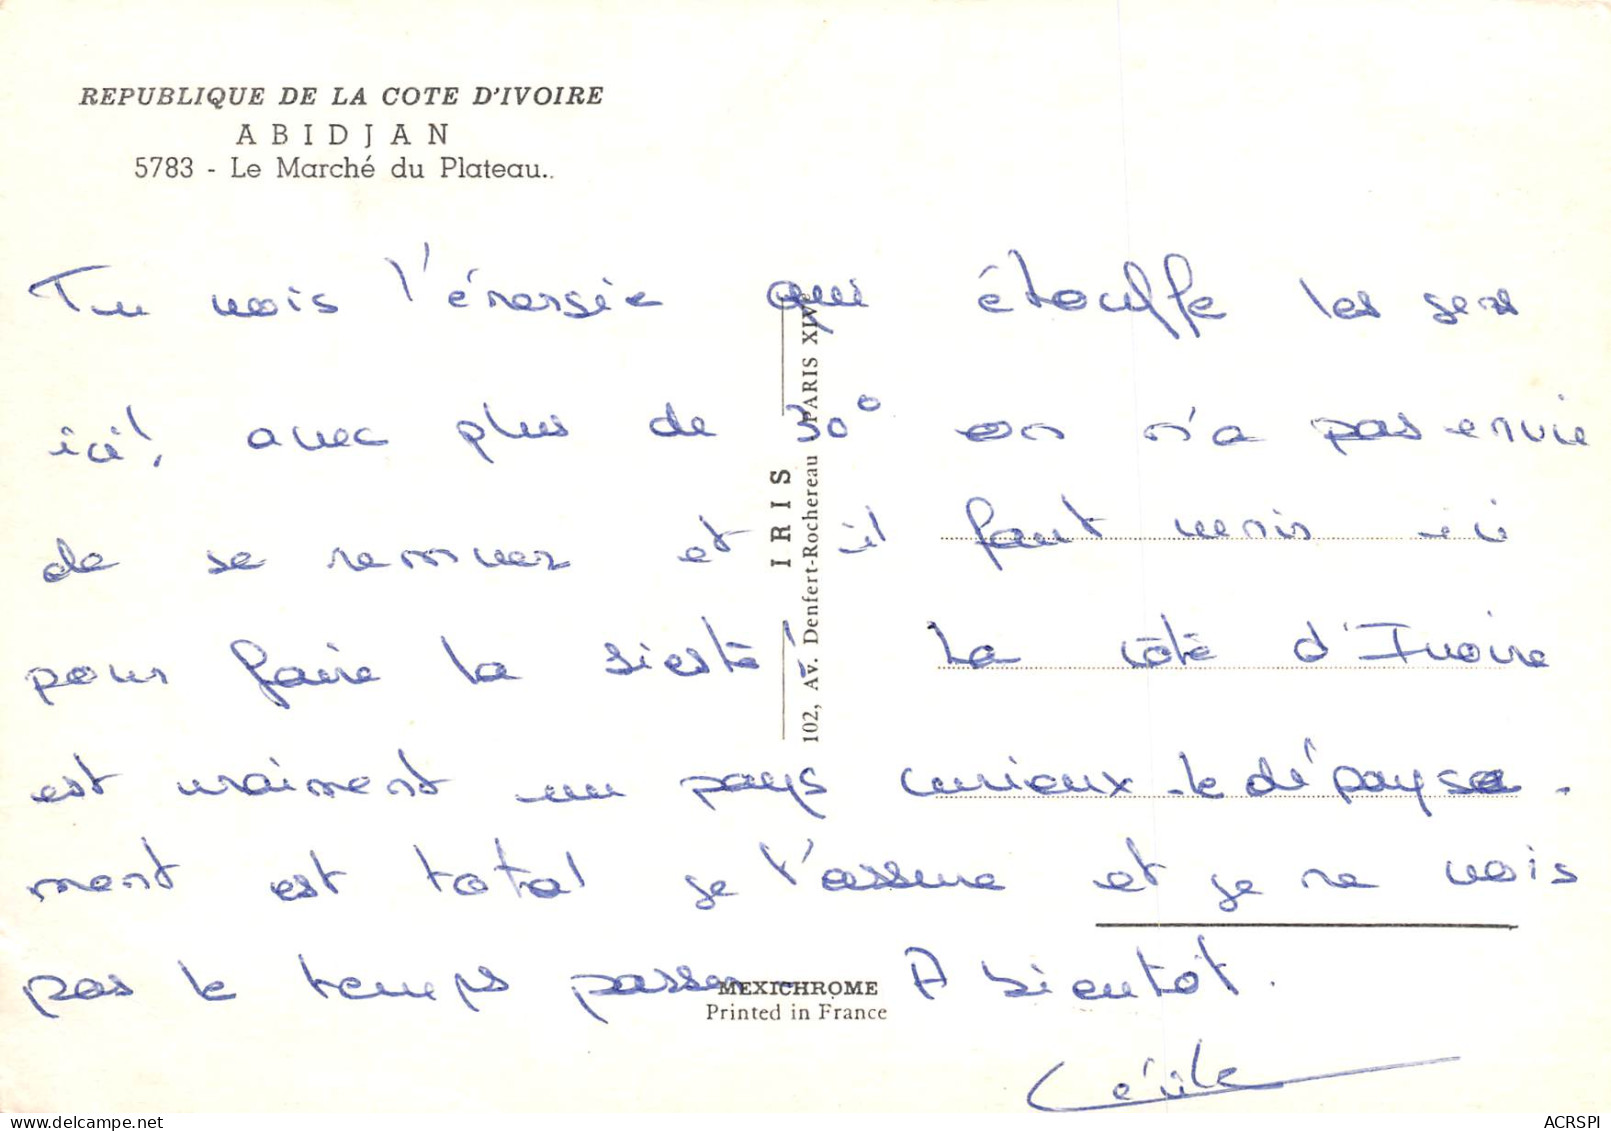 REPUBLIQUE DE LA COTE D'IVOIRE
ABIDJAN
5783 - Le Marché du Plateau..
Tu vois l'énergie qui étouffe les gens
ici!, avec plus de 30° on n'a pas envie
de se remuer et il faut venir ici
pour faire la sieste! La côte d'Ivoire
est vraiment un pays curieux. le dépayse-
ment est total je t'assure et je ne vois
pas le temps passer A bientôt.
Cécile
IRIS
102, Av. Denfert-Rochereau PARIS XIVe
MEXICHROME
Printed in France
ACRSPI